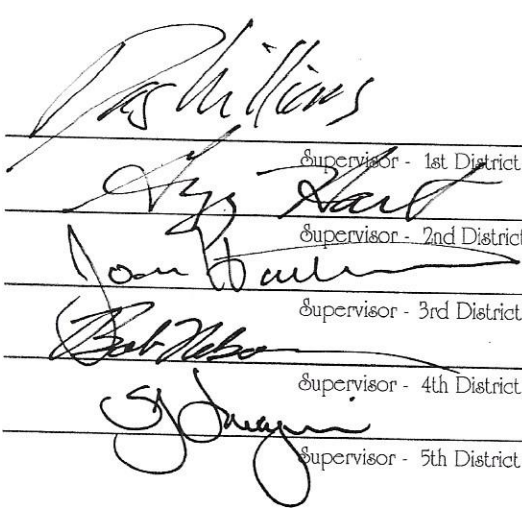 Das Williams
Supervisor - 1st District
Gregg Hart
Supervisor - 2nd District
Joan Hartmann
Supervisor - 3rd District
Bob Nelson
Supervisor - 4th District
Supervisor - 5th District